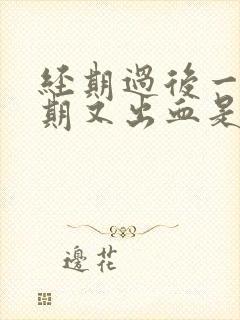 經期過後一
期又出血是
邊花